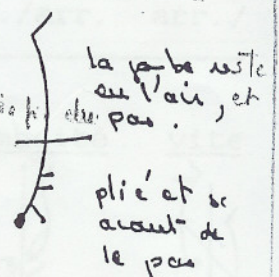 la jambe reste
en l'air, et
du pas.
plié et se
avant de
le pas